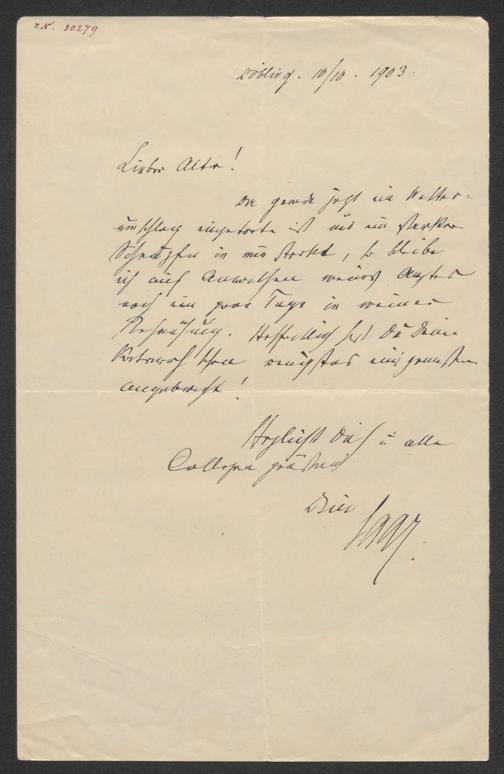 I.N. 30279
Döbling. 10/10. 1903.
Lieber Alter!
Da gerade jetzt ein Wetter=
umschlag eingetreten ist und ein starker
Schnupfen in mir steckt, so bleibe
ich auf Anrathen meines Arztes
noch ein paar Tage in meiner
Behausung. Hoffentlich hast Du Deine
schon wenigstens
angebracht!
Herzlichst Dich u alle
Collegen grüßend
Dein
Saar.